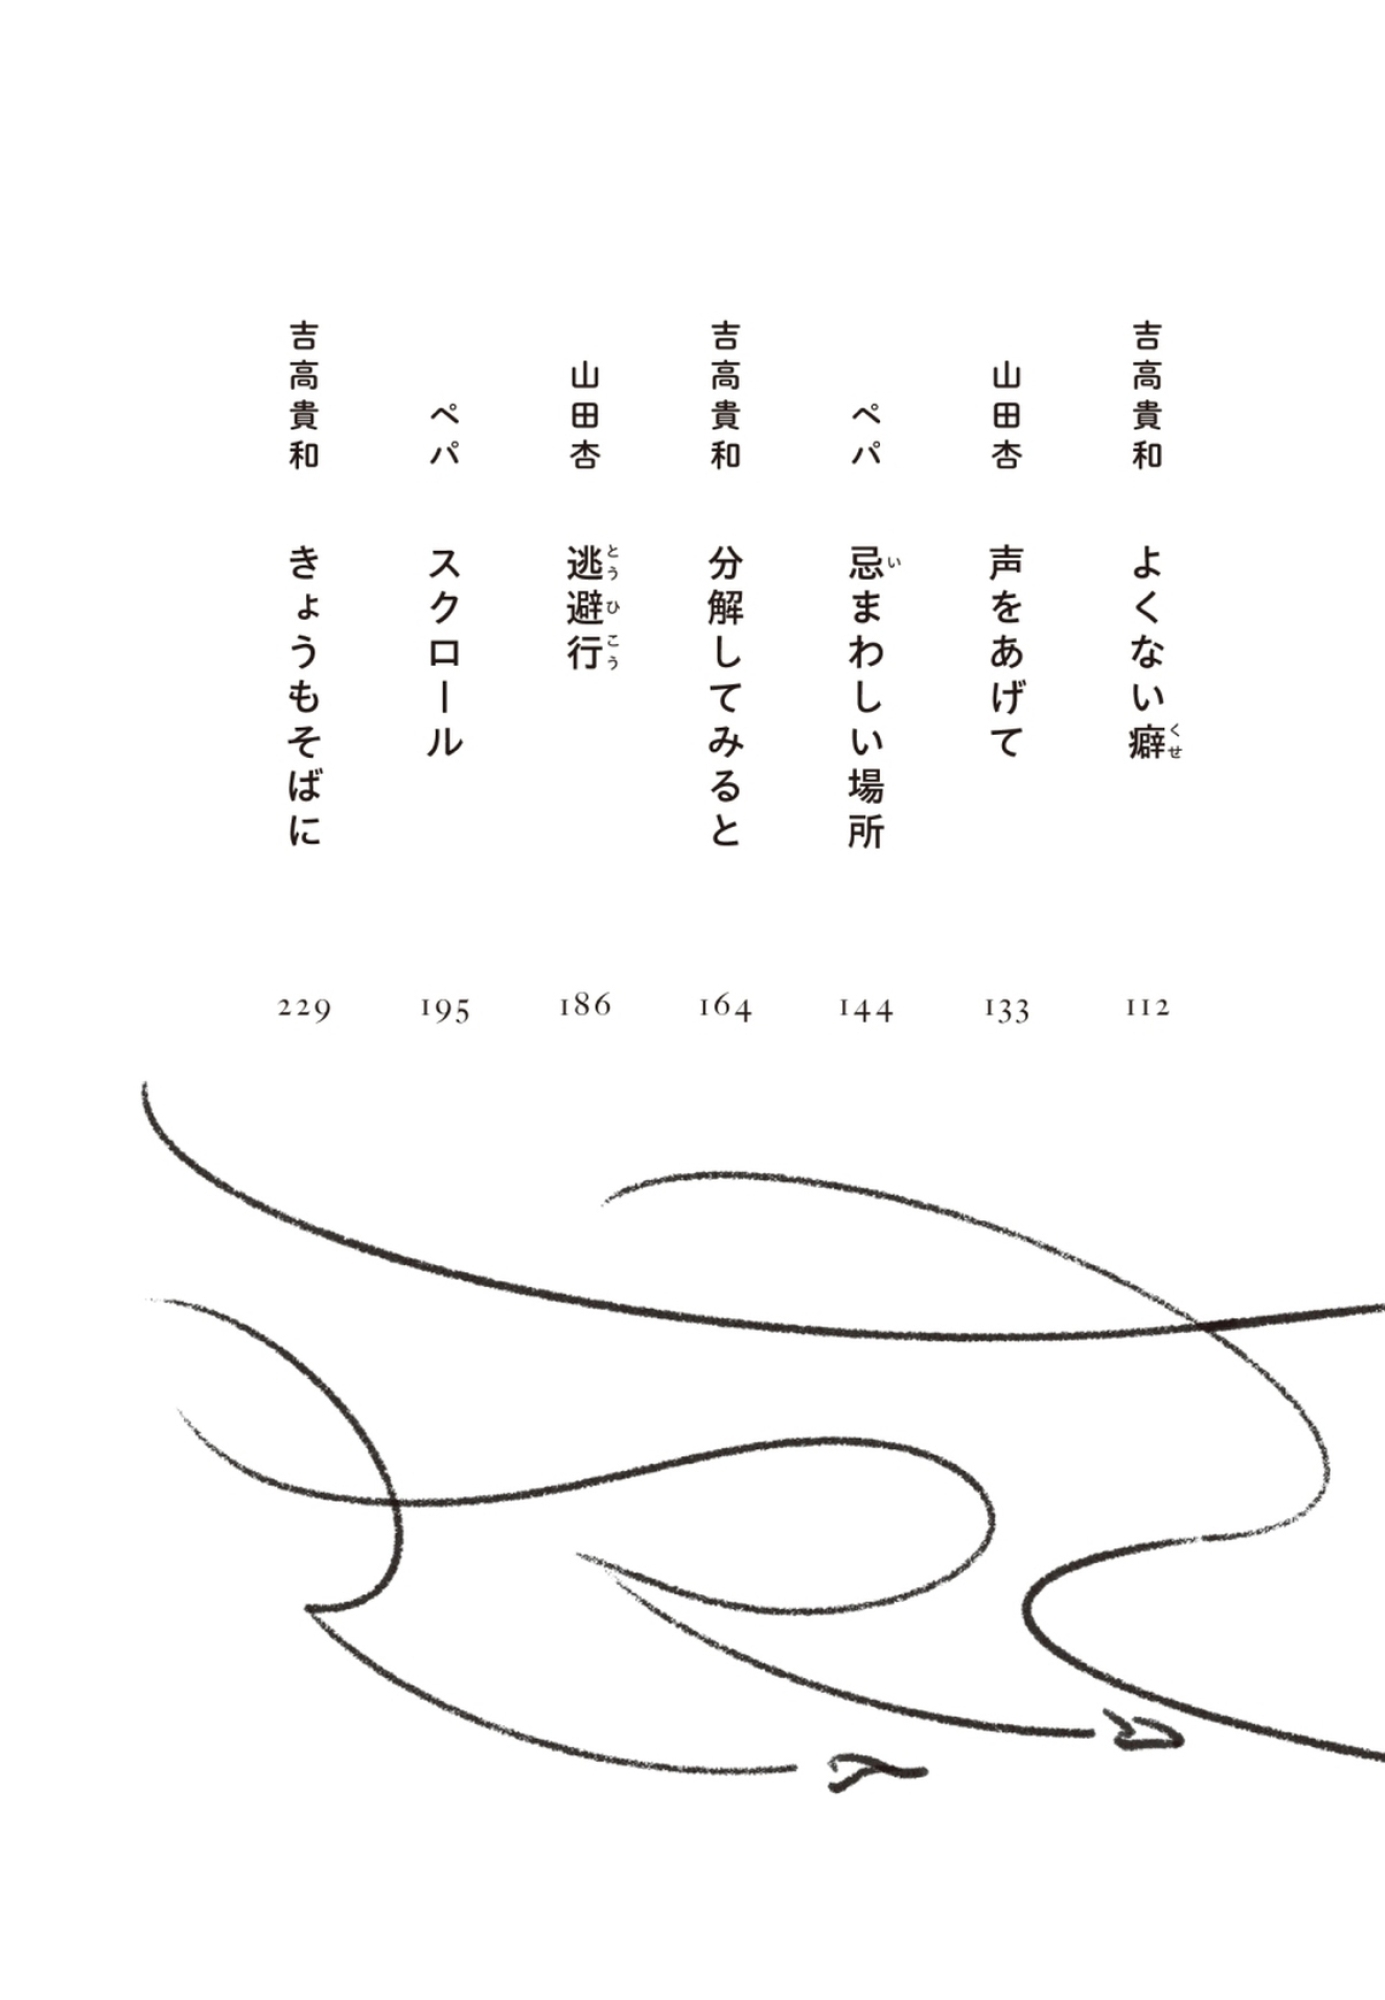 吉高貴和 よくない癖 112
山田杏 声をあげて 133
ペパ 忌まわしい場所 144
吉高貴和 分解してみると 164
山田杏 逃避行 186
ペパ スクロール 195
吉高貴和 きょうもそばに 229
くせ
い
とうひこう